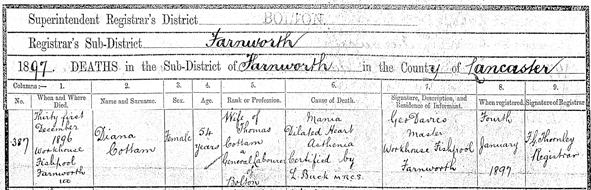 Superintendent Registrar's District BOLTON.
Registrar's Sub-District Farnworth
1897. DEATHS in the Sub-District of Farnworth in the County of Lancaster
Columns:— 1. 2. 3. 4. 5. 6. 7. 8. 9.
No. When and Where Died. Name and Surname. Sex. Age. Rank or Profession. Cause of Death. Signature, Description, and Residence of Informant. When registered. Signature of Registrar
387
Thirty first
December
1896
Workhouse
Fishpool
Farnworth
Diana
Cottam
Female
54
years
Wife of
Thomas
Cottam
a
General Labourer
of
Bolton
Mania
Dilated Heart
Asthenia
Certified by
L. Buck M.R.C.S.
Geo Davies
Master
Workhouse Fishpool
Farnworth
Fourth
January
1897.
Thornley
Registrar